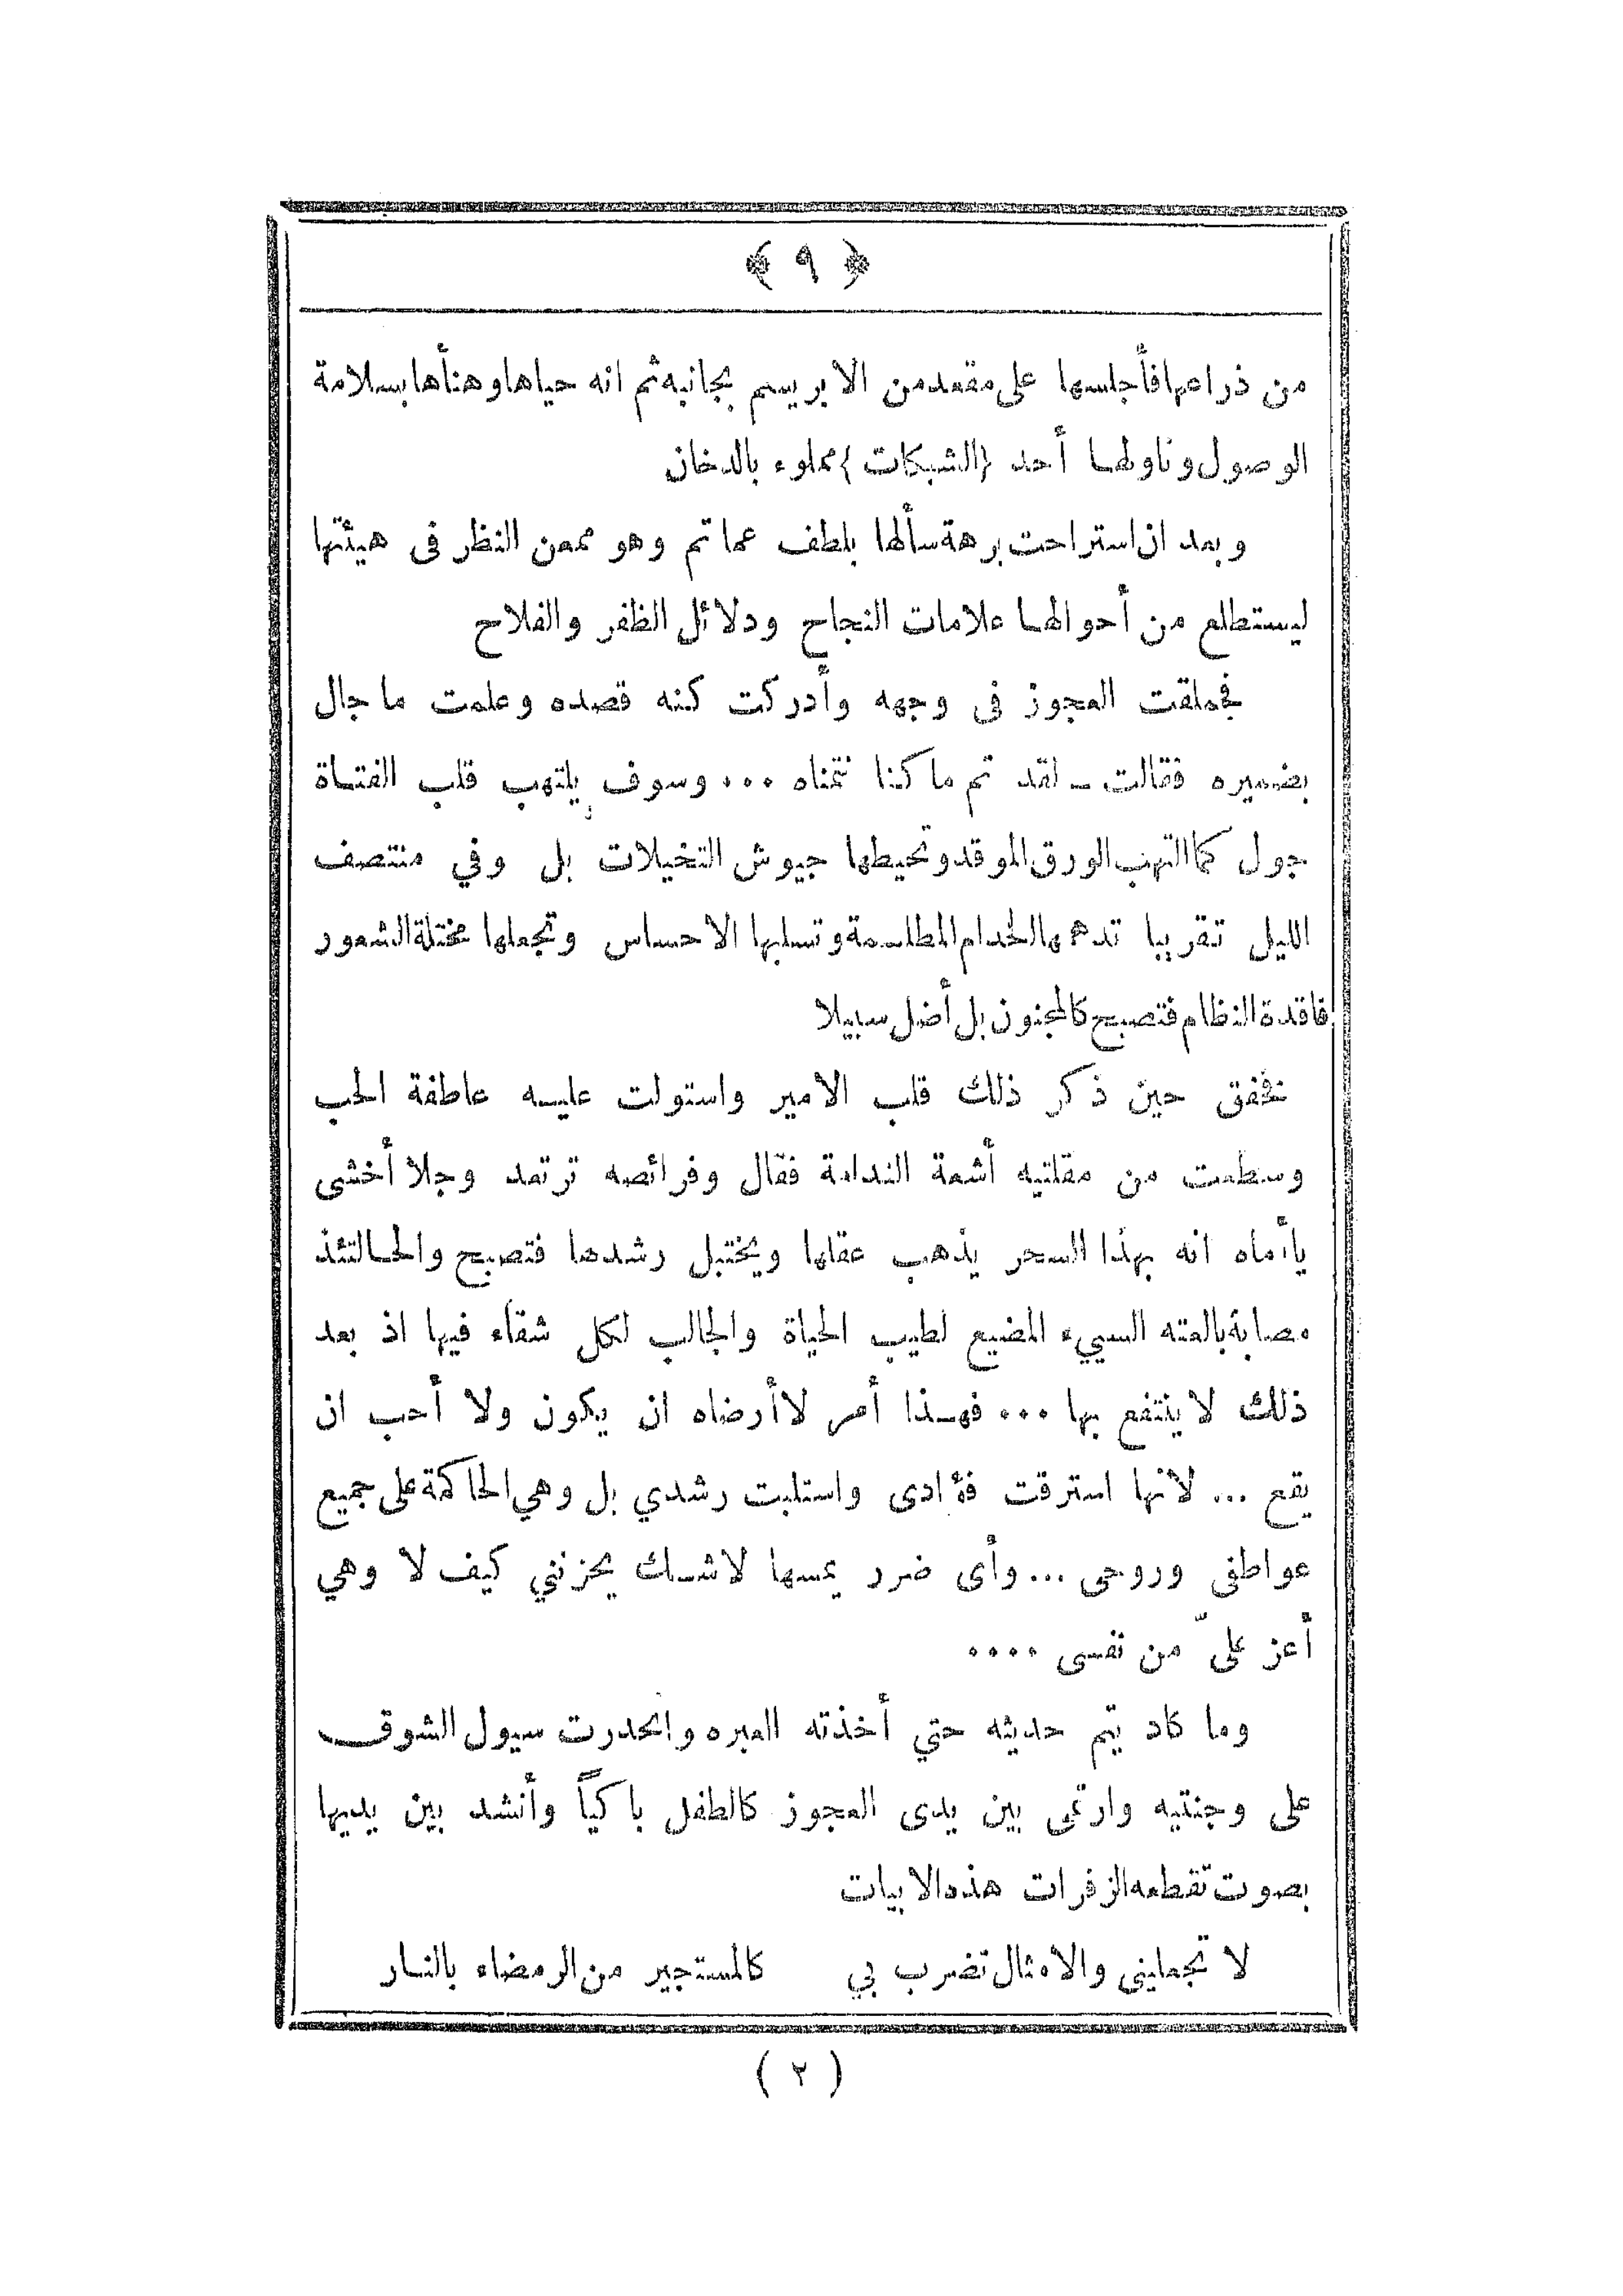 ﴿ ٩ ﴾
من ذراعها فأجلسها على مقعد من الابريسم بجانبه ثم انه حياها وهنأها بسلامة
الوصول وناولها أحد {الشبكات} مملوء بالدخان
وبعد ان استراحت برهة سألها بلطف عما تم وهو ممعن النظر فى هيئتها
ليستطلع من أحوالها علامات النجاح ودلائل الظفر والفلاح
فحملقت العجوز فى وجهه وأدركت كنه قصده وعلمت ما جال
بضميره فقالت ـ لقد تم ما كنا نتمناه ... وسوف يلتهب قلب الفتاة
جول كما التهب الورق الموقد وتحيطها جيوش التخيلات بل وفي منتصف
الليل تقريبا تدهمها الخدام المطلسمة وتسلبها الاحساس وتجعلها مختلة الشعور
فاقدة النظام فتصبح كالمجنون بل أضل سبيلا
فخفق حين ذكر ذلك قلب الامير واستولت عليه عاطفة الحب
وسطعت من مقلتيه أشعة الندامة فقال وفرائصه ترتعد وجلا أخشى
يا أماه انه بهذا السحر يذهب عقلها ويختبل رشدها فتصبح والحالتئذ
مصابة بالعته السييء المضيع لطيب الحياة والجالب لكل شقاء فيها اذ بعد
ذلك لا ينتفع بها ... فهذا أمر لا أرضاه ان يكون ولا أحب ان
يقع ... لانها استرقت فؤادى واستلبت رشدي بل وهي الحاكمة على جميع
عواطفى وروحى ... وأى ضرر يمسها لاشك يحزنني كيف لا وهي
أعز علىّ من نفسى ....
وما كاد يتم حديثه حتي أخذته العبره وانحدرت سيول الشوق
على وجنتيه وارتمى بين يدى العجوز كالطفل باكياً وأنشد بين يديها
بصوت تقطعه الزفرات هذه الابيات
لا تجعلينى والامثال تضرب بي كالمستجير من الرمضاء بالنار
( ٢ )